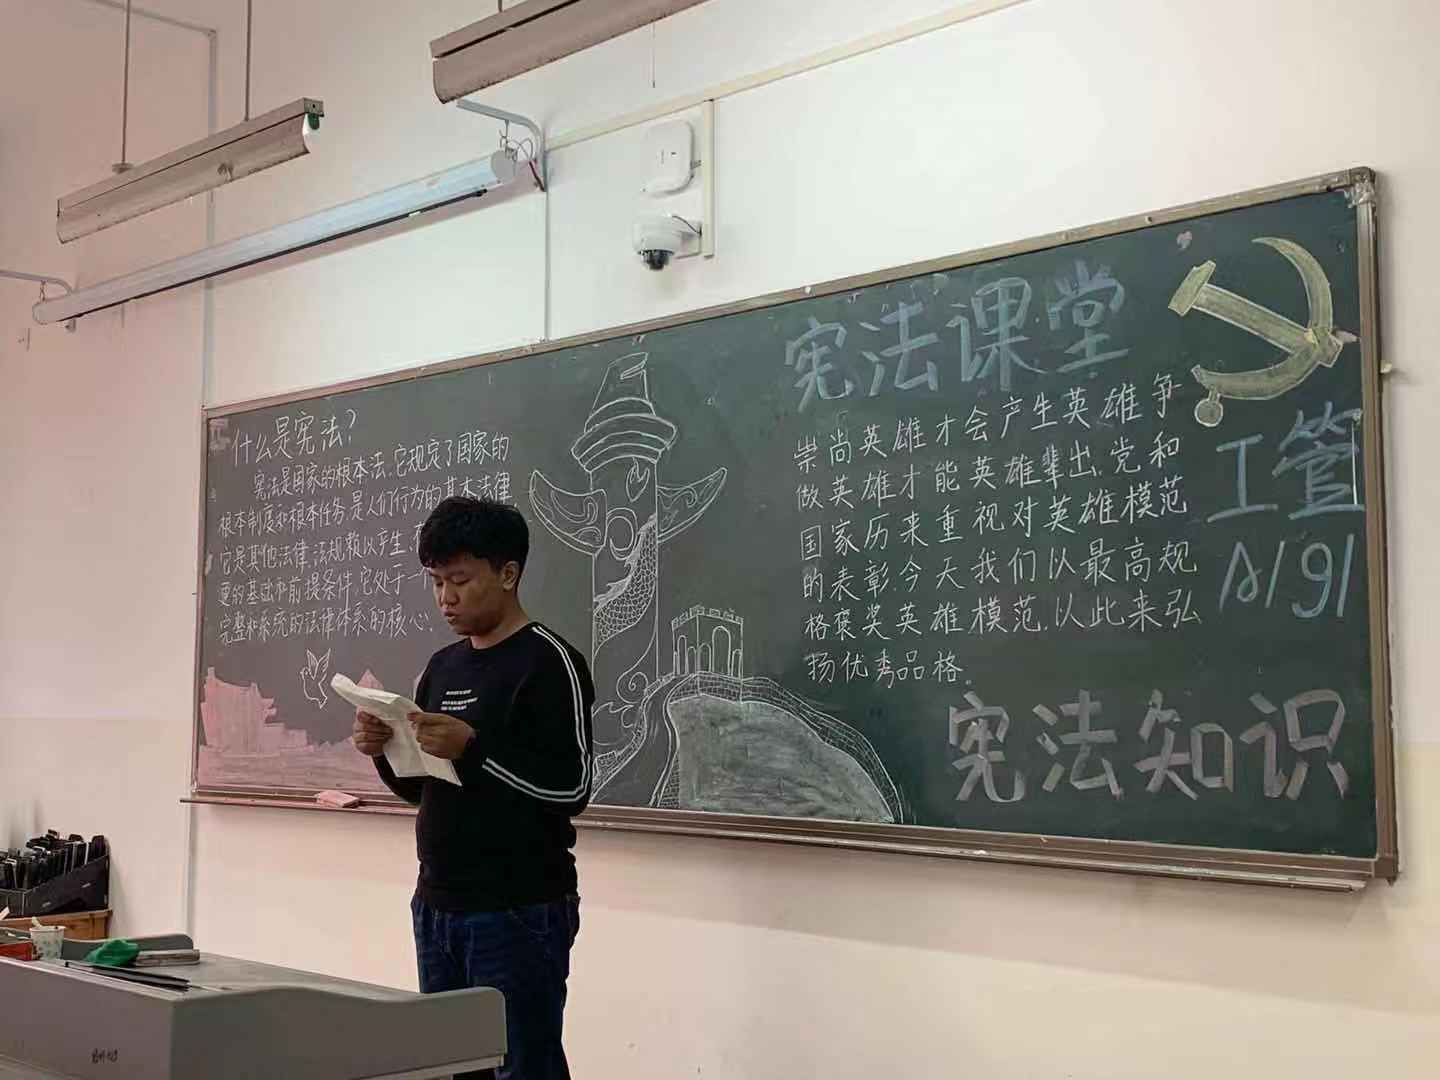 什么是宪法？
宪法是国家的根本法、它规定了国家的
根本制度和根本任务、是人们行为的基本法律
它是其他法律、法规赖以产生、
更的基础和前提条件、它处于一
完整和系统的法律体系的核心、
宪法课堂
崇尚英雄才会产生英雄争
做英雄才能英雄辈出、党和
国家历来重视对英雄模范
的表彰、今天我们以最高规
格褒奖英雄模范、以此来弘
扬优秀品格。
工管
A191
宪法知识